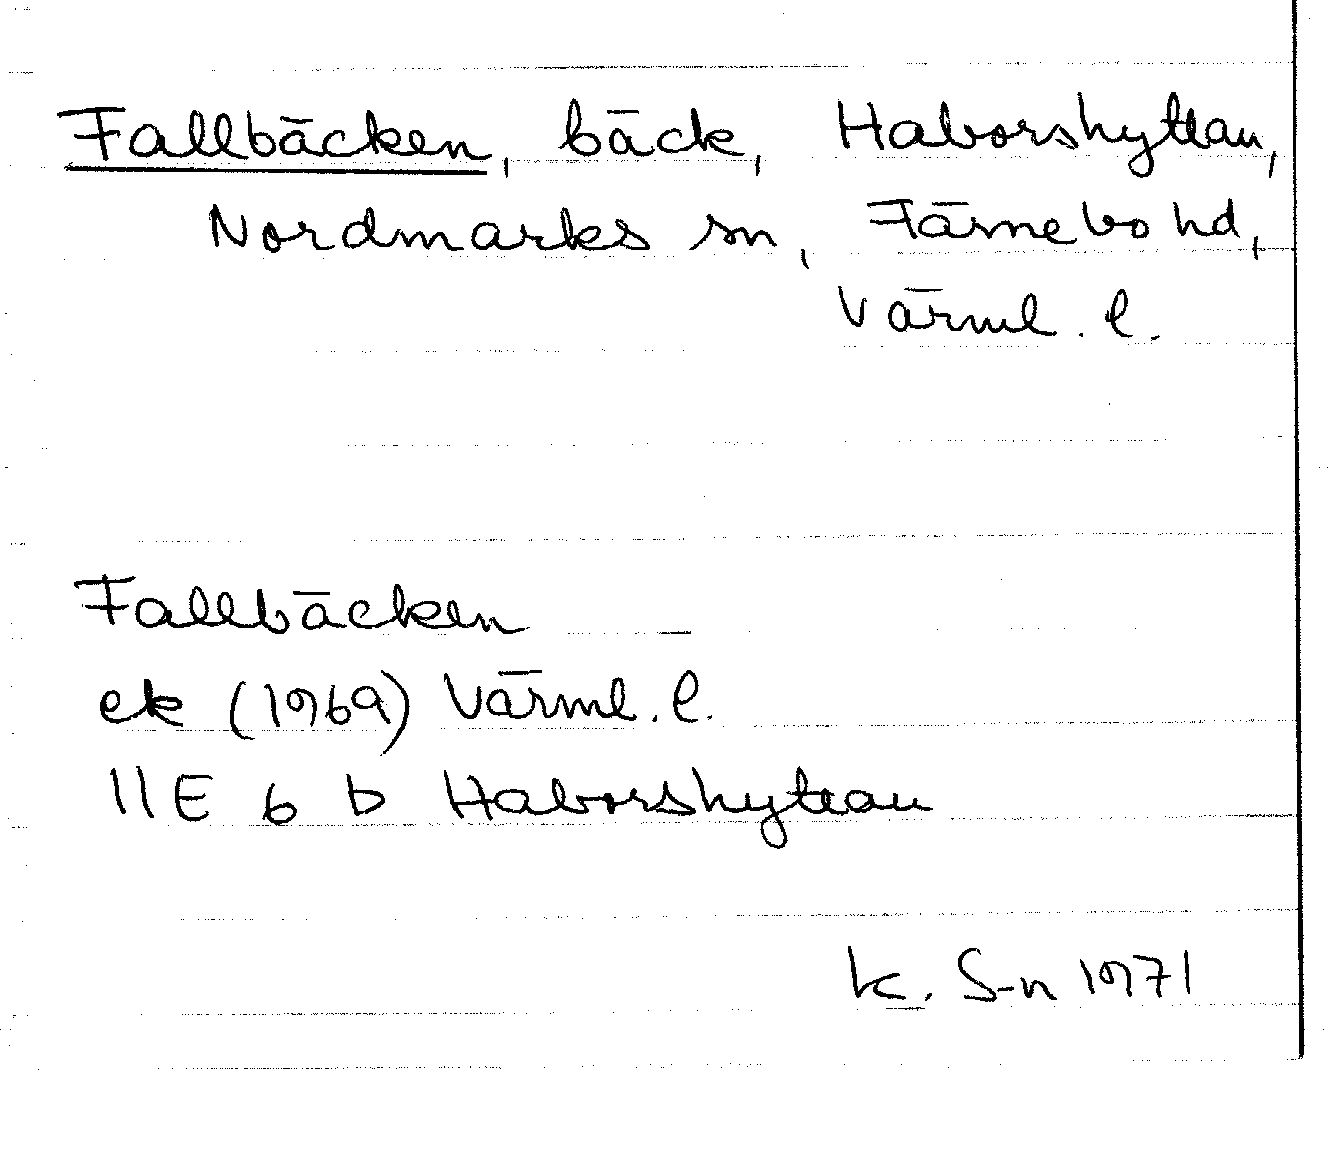 Fallbäcken, bäck, Haborshyttan,
Nordmarks sn, Färnebo hd,
Värml. l.
Fallbäcken
ek (1969) Värml. l.
11E 6 b Haborshyttan
K. S-n 1971